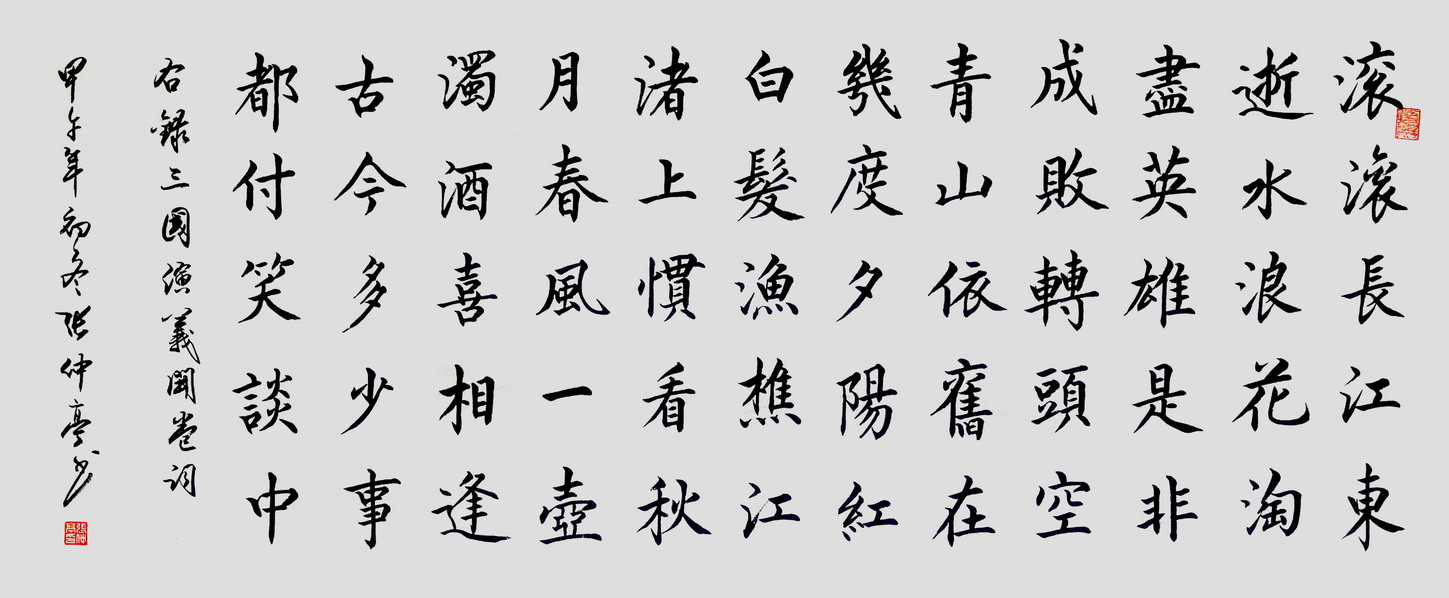 滚滚長江東
逝水浪花淘
盡英雄是非
成敗轉頭空
青山依舊在
幾度夕陽紅
白髮漁樵江
渚上慣看秋
月春風一壺
濁酒喜相逢
古今多少事
都付笑談中
右錄三國演義開卷詞
甲午年初冬张仲亭书